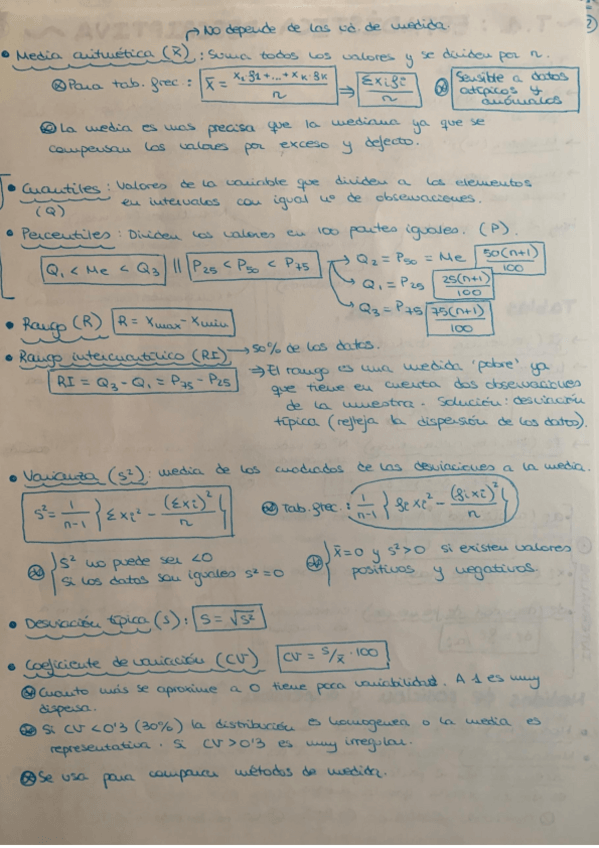 ↱No depende de las ud. de medida.
• Media aritmética (x̄): Suma todos los valores y se dividen por n.
⊛ Para tab. frec.: x̄ = (x₁f₁+...+xₖ.fₖ)/n ⇒ Σxifi/n ⊛ Sensible a datos atípicos y anómalos
⊛ La media es mas precisa que la mediana ya que se
compensan los valores por exceso y defecto.
• Cuantiles: Valores de la variable que dividen a los elementos
(Q) en intervalos con igual nº de observaciones.
• Percentiles: Dividen los valores en 100 partes iguales. (P).
Q₁ < Me < Q₃ || P₂₅ < P₅₀ < P₇₅ → Q₂ = P₅₀ = Me 50(n+1)/100
Q₁ = P₂₅ 25(n+1)/100
Q₃ = P₇₅ 75(n+1)/100
• Rango (R) R = xmax - xmin
• Rango intercuantílico (RI) → 50% de los datos.
RI = Q₃ - Q₁ = P₇₅ - P₂₅ ⇒ El rango es una medida 'pobre' ya
que tiene en cuenta dos observaciones
de la muestra. Solución: desviación
típica (refleja la dispersión de los datos).
• Varianza (s²): media de los cuadrados de las desviaciones a la media.
s² = 1/(n-1) {Σxi² - (Σxi)²/n} ⊛ Tab. frec.: 1/(n-1) {fi xi² - (fi xi)²/n}
⊛ { s² no puede ser <0 ⊛ { x̄=0 y s²>0 si existen valores
Si los datos son iguales s²=0 positivos y negativos.
• Desviación típica (s): s = √s²
• Coeficiente de variación (CV) CV = s/x̄ · 100
⊛ Cuanto más se aproxime a 0 tiene poca variabilidad. A 1 es muy
dispersa.
⊛ Si CV < 0'3 (30%) la distribución es homogenea o la media es
representativa. Si CV > 0'3 es muy irregular.
⊛ Se usa para comparar métodos de medida.